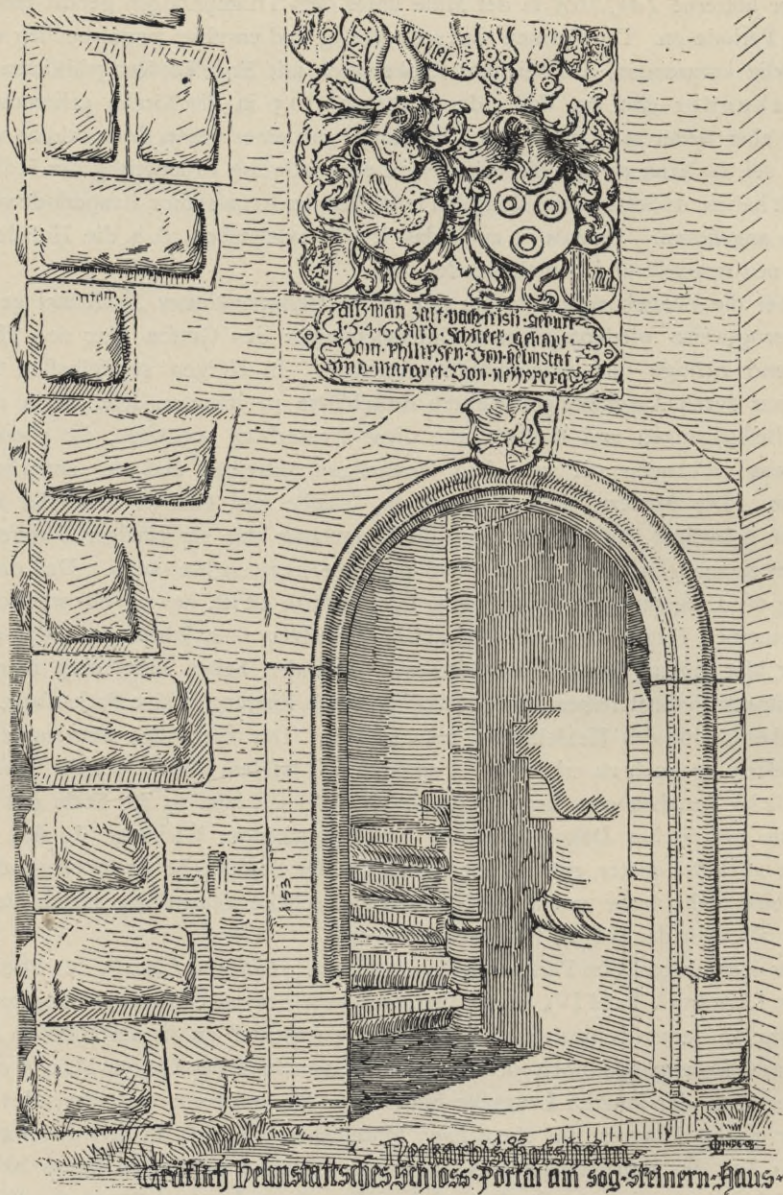 LVST
VNVIEL
altz man zalt nach cristi geburt
1·5·4·6 Vard· Schneck· gebaut·
Vom· Philipsen· Von· helmstat
vnd· margret· Von· neypperg
153
1.05
Neckarbischofsheim
Gräflich Helmstattsches Schloss· Portal am sog· steinern· Haus·
LINDE·08·